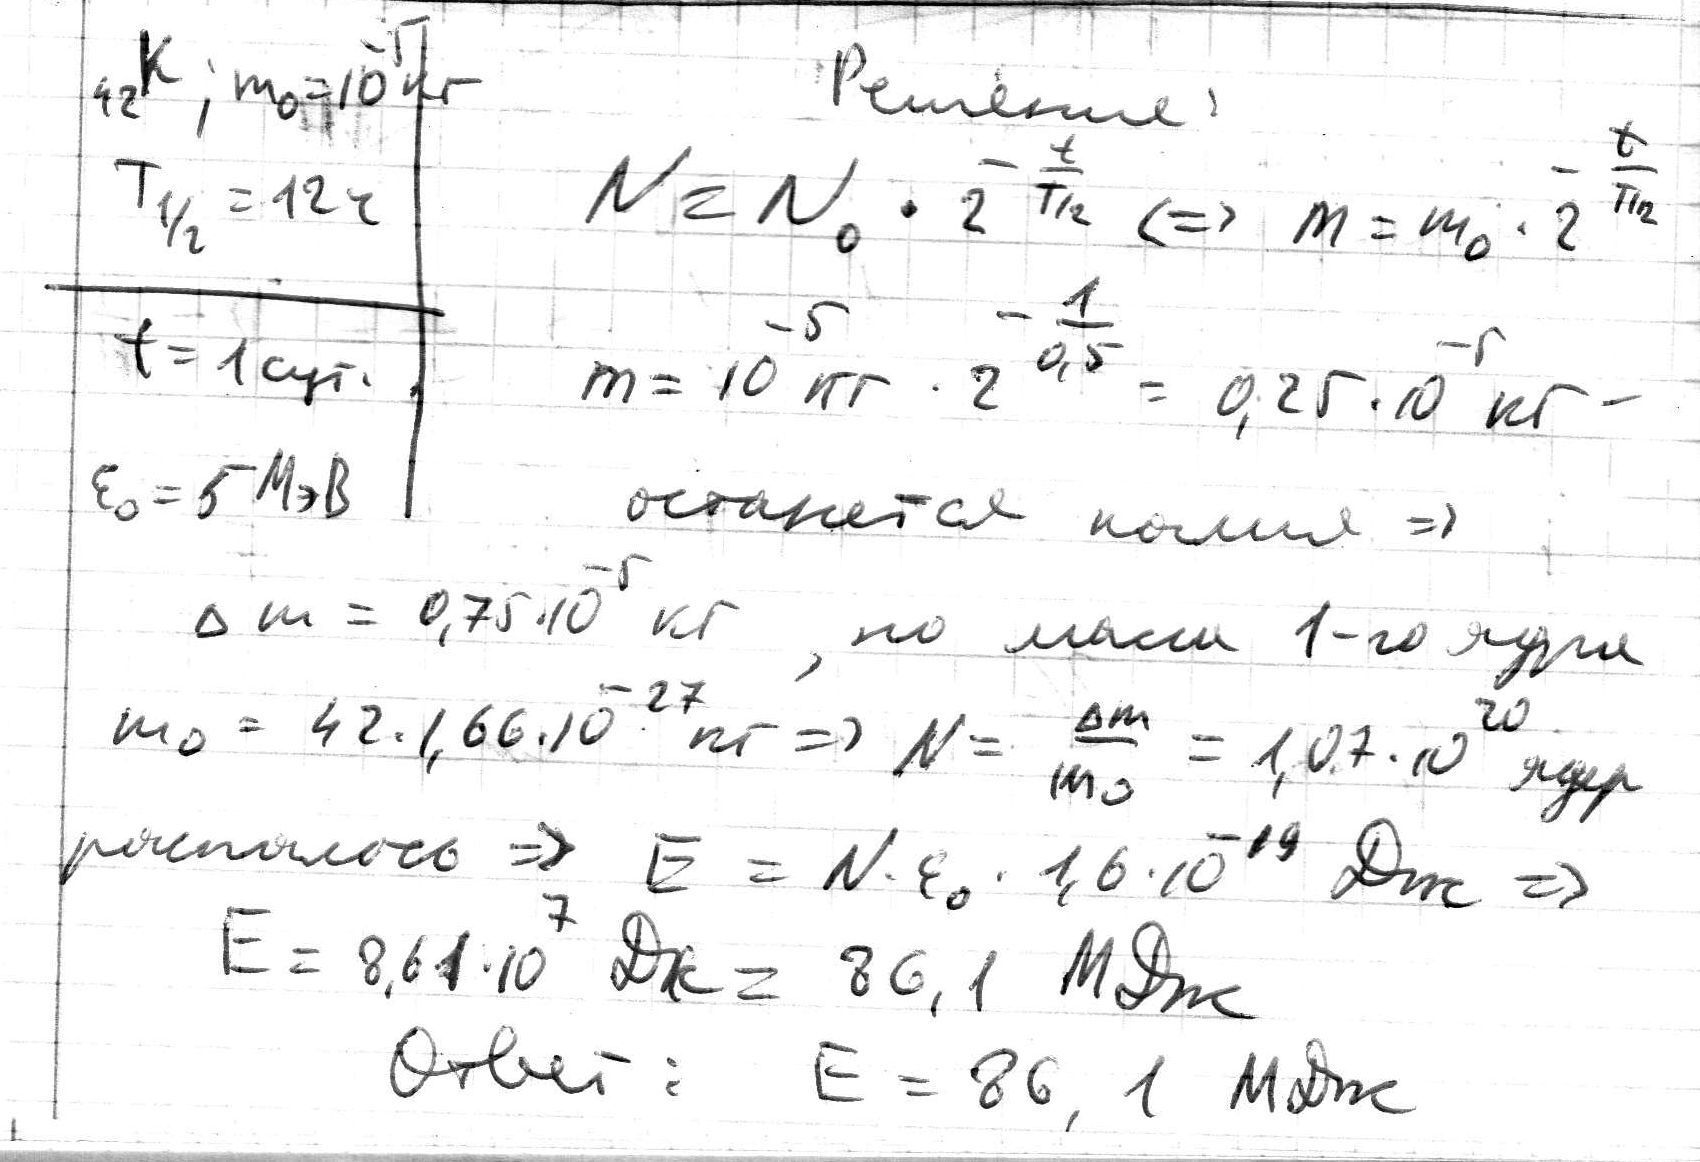 ₄₂K; m₀=10⁻⁵кг
T₁/₂ = 12ч
t = 1 сут.
ε₀ = 5 МэВ
Решение:
N = N₀ · 2^(-t/T₁/₂) <=> m = m₀ · 2^(-t/T₁/₂)
m = 10⁻⁵ кг · 2^(-1/0,5) = 0,25·10⁻⁵ кг –
останется калия =>
Δm = 0,75·10⁻⁵ кг, но масса 1-го ядра
m₀ = 42·1,66·10⁻²⁷ кг => N = Δm/m₀ = 1,07·10²⁰ ядер
распалось => E = N·ε₀·1,6·10⁻¹⁹ Дж =>
E = 8,61·10⁷ Дж = 86,1 МДж
Ответ: E = 86,1 МДж